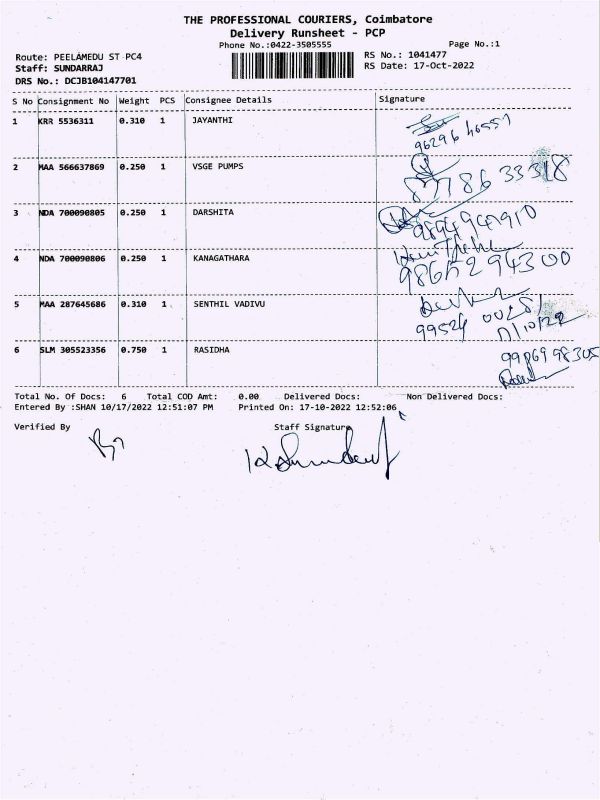 THE PROFESSIONAL COURIERS, Coimbatore
Delivery Runsheet - PCP
Phone No.:0422-3505555
Page No.:1
Route: PEELAMEDU ST PC4
RS No.: 1041477
Staff: SUNDARRAJ
RS Date: 17-Oct-2022
DRS No.: DCJB104147701
S No Consignment No Weight PCS Consignee Details Signature
1 KRR 5536311 0.310 1 JAYANTHI
96296 46551
2 MAA 566637869 0.250 1 VSGE PUMPS
87786 33318
3 NDA 700090805 0.250 1 DARSHITA
9894941910
4 NDA 700090806 0.250 1 KANAGATHARA
5 MAA 287645686 0.310 1 SENTHIL VADIVU
6 SLM 305523356 0.750 1 RASIDHA
Total No. Of Docs: 6 Total COD Amt: 0.00 Delivered Docs: Non Delivered Docs:
Entered By :SHAN 10/17/2022 12:51:07 PM Printed On: 17-10-2022 12:52:06
Verified By Staff Signature